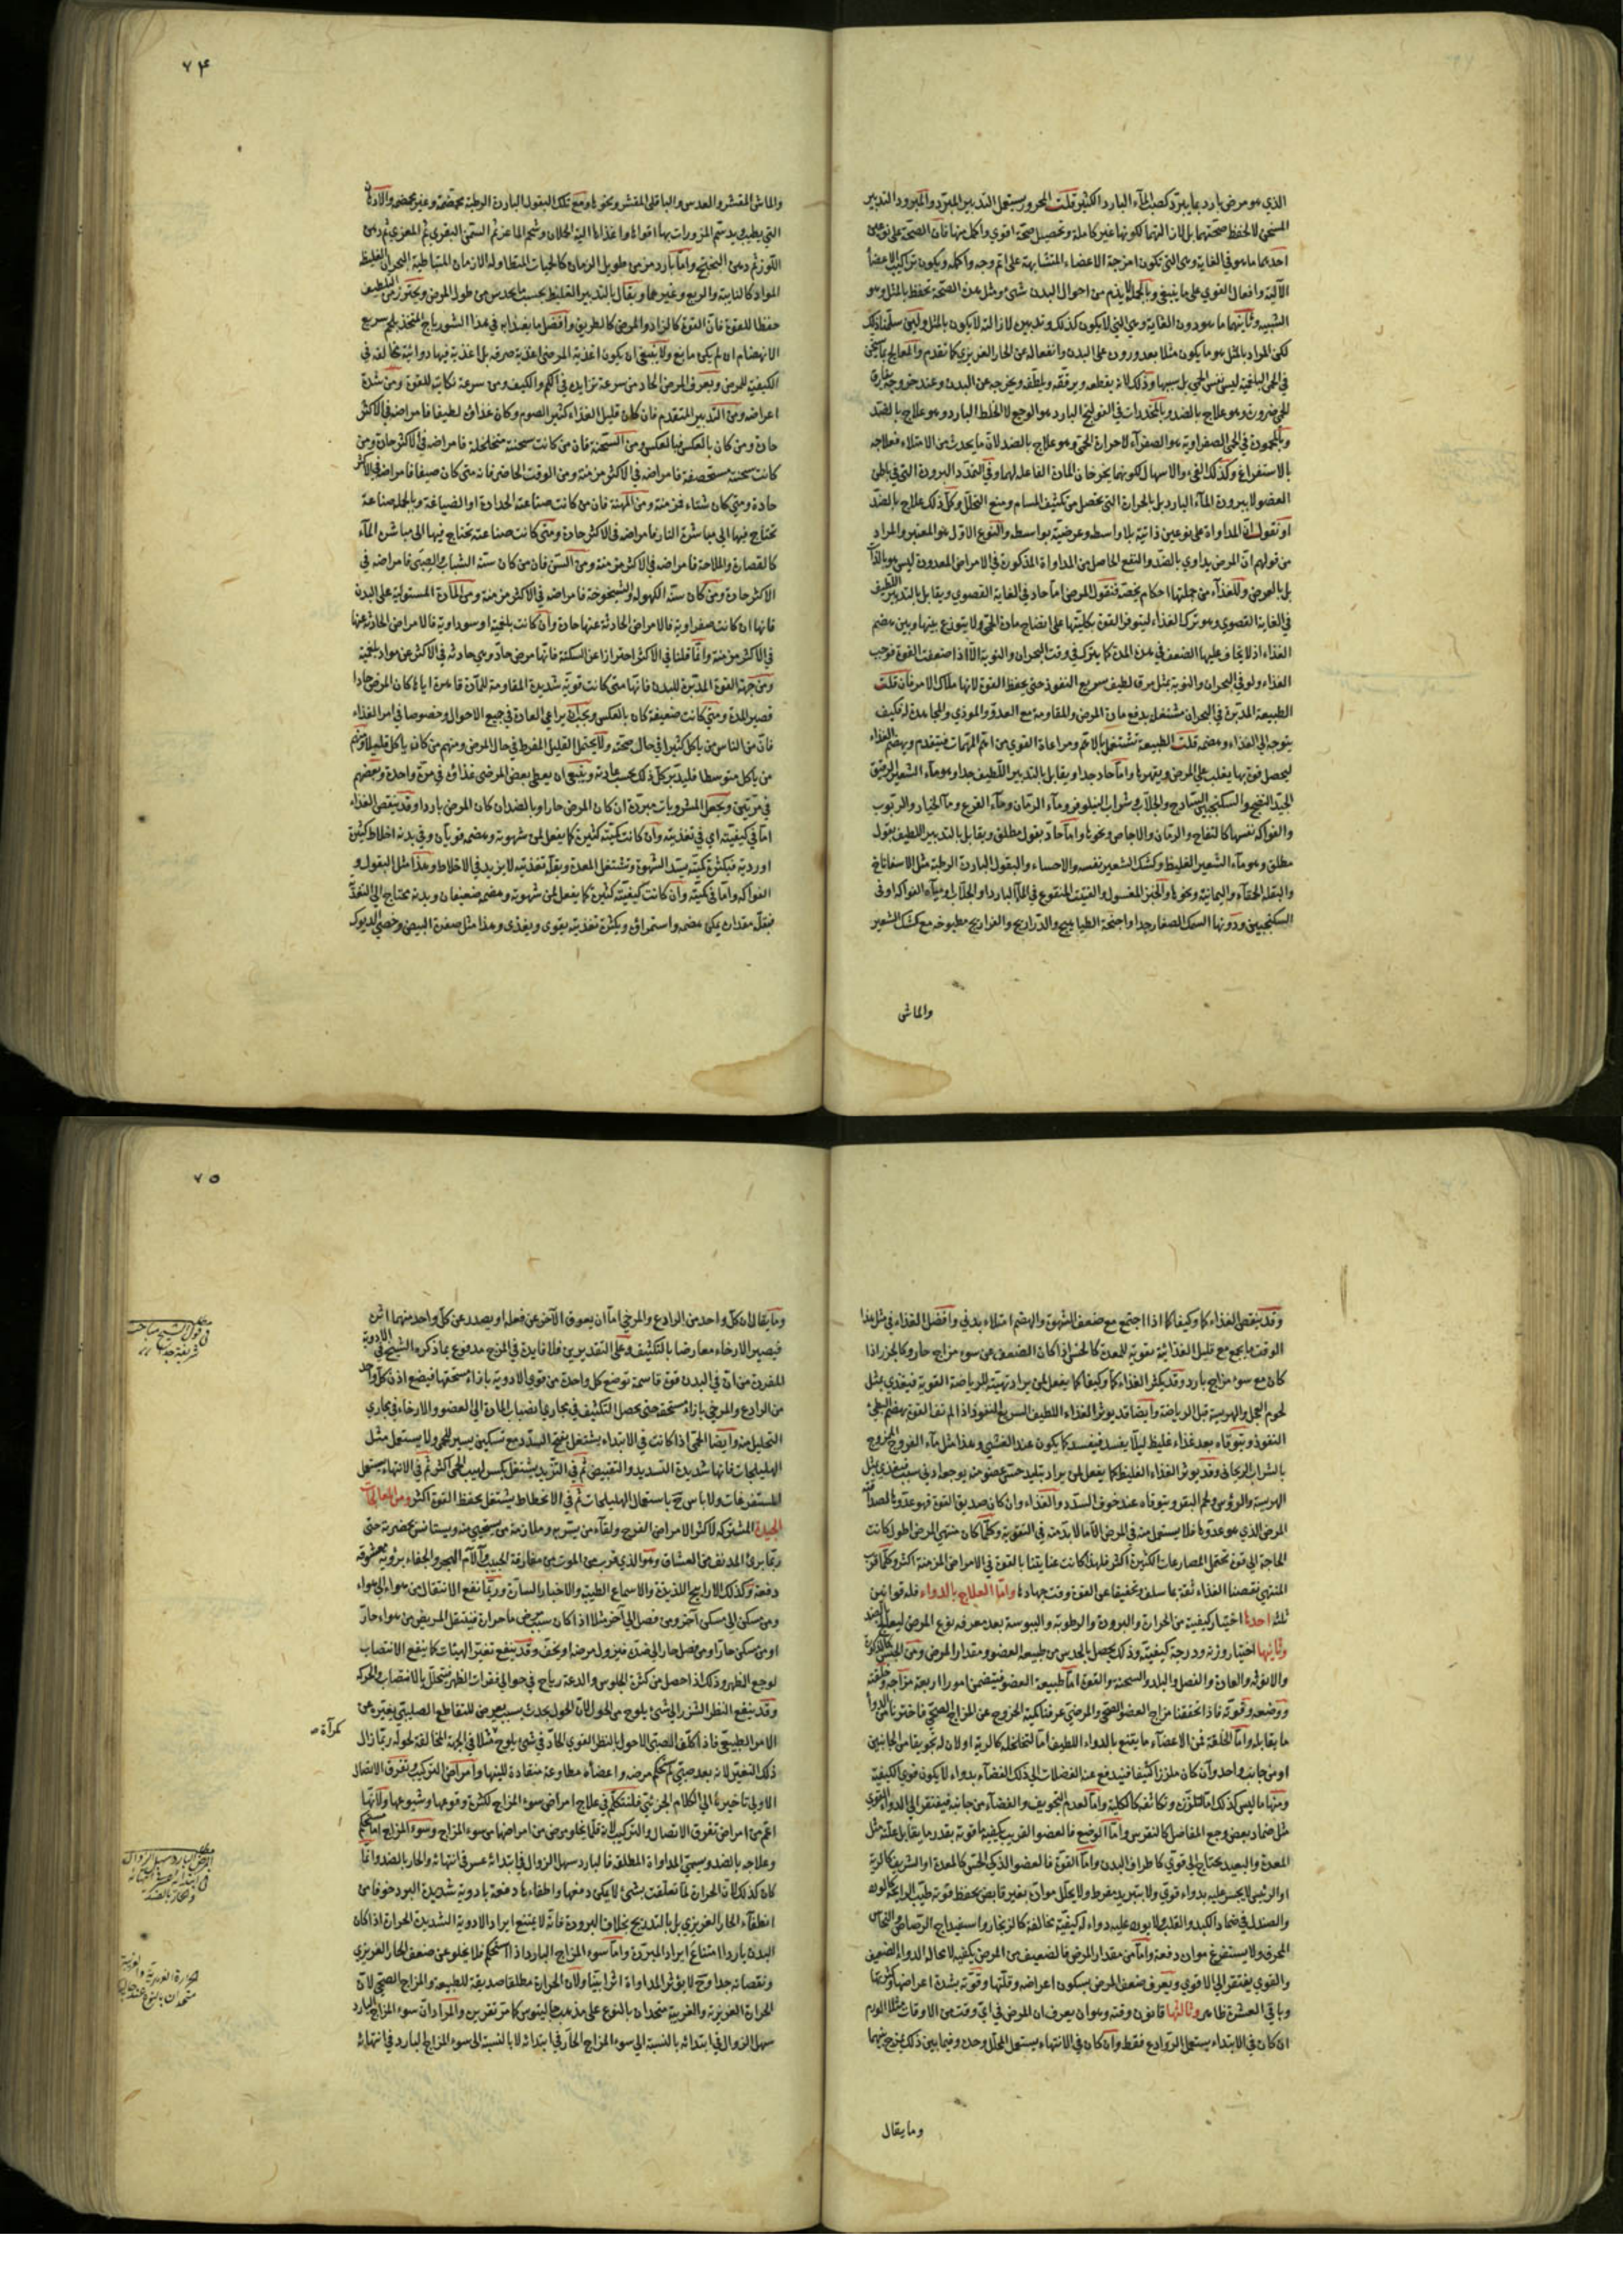 الذي هو مرض بارد بما يبرد كصب الماء البارد الكثير قلت المحرور يستعمل التدبير المبرد والمبرود التدبير
المسخن لا لحفظ صحتهما بل لازالتهما لكونها غير كاملة وتحصيل صحة اقوى واكمل منها فان الصحة على نوعين
احدهما ما هو في الغاية وهي التي تكون امزجة الاعضاء المتشابهة على اتم وجه واكمله ويكون تراكيب الاعضاء
الآلية وافعال القوى على ما ينبغي وبالجملة لا يذم من احوال البدن شيء ومثل هذه الصحة تحفظ بالمثل وهو
الشبيه وثانيتهما ما هو دون الغاية وهي التي لا يكون كذلك وتدبيره لازالته لا يكون بالمثل ولئن سلمنا ذلك
لكن المراد بالمثل هو ما يكون مثلا بعد وروده على البدن وانفعاله عن الحار الغريزي كما تقدم والمعالج بما يسخن
في الحمى البلغمية ليس نفس الحمى بل سببها وذلك لانه يقطعه ويرققه ويلطفه ويخرجه عن البدن وعند خروجه يفارق
الحمى ضرورة وهو علاج بالضد وبالمخدرات في القولنج البارد هو الوجع لا الخلط البارد وهو علاج بالضد
وبالمحمودة في الحمى الصفراوية هو الصفراء لا حرارة الحمى وهو علاج بالضد لان ما يحدث من الامتلاء فعلاجه
بالاستفراغ وكذلك القيء والاسهال لكونهما يخرجان المادة الفاعلة لهما وفي التمدد البرودة التي في باطن
العضو لا ببرودة الماء البارد بل بالحرارة التي تحصل من تكثيف المسام ومنع التحلل وكل ذلك علاج بالضد
او نقول ان المداواة على نوعين ذاتية بلا واسطة وعرضية بواسطة والنوع الاول هو المعتبر والمراد
من قولهم ان المرض يداوى بالضد والنفع الحاصل من المداواة المذكورة في الامراض المعدودة ليس هو بالذات
بل بالعرض وللغذاء من جملتها احكام يخصه فنقول المرض اما حاد في الغاية القصوى ويقابل بالتدبير اللطيف
في الغاية القصوى وهو ترك الغذاء ليتوفر القوة بكليتها على انضاج مادة الحمى ولا يتوزع بينها وبين هضم
الغذاء اذ لا يخاف عليها الضعف في هذه المدة كما يترك في وقت البحران والنوبة الا اذا ضعفت القوة فوجب
الغذاء ولو في البحران والنوبة بمثل مرق لطيف سريع النفوذ حتى يحفظ القوة لانها ملاك الامر فان قلت
الطبيعة المدبرة في البحران مشتغل بدفع مادة المرض والمقاومة مع العدو والموذي والمجاهدة له فكيف
يتوجه الى الغذاء وهضمه قلت الطبيعة تشتغل بالاهم ومراعاة القوى من اهم المهمات فيتقدم وبهضم الغذاء
ليحصل قوة بها يغلب على المرض ويقهره واما حاد جدا ويقابل بالتدبير اللطيف جدا وهو ماء الشعير الرقيق
الجيد النضج والسكنجبين الساذج والجلاب وشراب النيلوفر وماء الرمان وماء القرع وماء الخيار والرتوب
والفواكه نفسها كالتفاح والرمان والاجاص ونحوها واما حاد بقول مطلق ويقابل بالتدبير اللطيف بقول
مطلق وهو ماء الشعير الغليظ وكشك الشعير نفسه والاحساء والبقول الباردة الرطبة مثل الاسفاناخ
والبقلة الحمقاء واليمانية ونحوها والخبز المغسول والفتيت المنقوع في الماء البارد او الجلاب او مياه الفواكه او في
السكنجبين ودونها السمك الصغار جدا واجنحة الطياهيج والدراريج والفراريج مطبوخة مع كشك الشعير
والماش
٧٤
والماش المقشر والعدس والباقلى المقشر ونحوها ومع تلك البقول الباردة الرطبة محمضة وغير محمضة والادهان
التي يطيب ويدسم المزورات بها اقواها واغذاها الية الحملان وشحم الماعز ثم السمن البقري ثم المعزي ثم دهن
اللوز ثم دهن البنفسج واما بارد مزمن طويل الزمان كالحميات المتطاولة الازمان المتباطية البحران الغليظة
المواد كالنايبة والربع وغيرهما ويقابل بالتدبير الغليظ بحسب ما يحدس من طول المرض ويحترز من التلطيف
حفظا للقوة فان القوة كالزاد والمرض كالطريق وافضل ما يغذى به في هذا الشورباج المتخذ بلحم سريع
الانهضام ان لم يكن مانع ولا ينبغي ان يكون اغذية المرضى اغذية صرفة بل اغذية فيها دوائية مخالفة في
الكيفية للمرض ويعرف المرض الحاد من سرعة تزايده في الكم والكيف ومن سرعة نكايته للقوة ومن شدة
اعراضه ومن التدبير المتقدم فان كان قليل الغذاء كثير الصوم وكان غذاؤه لطيفا فامراضه في الاكثر
حادة ومن كان بالعكس فبالعكس ومن السحنة فان من كانت سحنته متخلخلة فامراضه في الاكثر حادة ومن
كانت سحنته مستحصفة فامراضه في الاكثر مزمنة ومن الوقت الحاضر فانه متى كان صيفا فامراضه في الاكثر
حادة ومتى كان شتاء فمزمنة ومن المهنة فان من كانت صناعته الحدادة او الصياغة وبالجملة صناعة
تحتاج فيها الى مباشرة النار فامراضه في الاكثر حادة ومتى كانت صناعته تحتاج فيها الى مباشرة الماء
كالقصارة والملاحة فامراضه في الاكثر مزمنة ومن السن فان من كان سنه الشباب والصبى فامراضه في
الاكثر حادة ومن كان سنه الكهولة والشيخوخة فامراضه في الاكثر مزمنة ومن المادة المستولية على البدن
فانها ان كانت صفراوية فالامراض الحادثة عنها حادة وان كانت بلغمية او سوداوية فالامراض الحادثة عنها
في الاكثر مزمنة وانما قلنا في الاكثر احترازا عن السكتة فانها مرض حاد وهي حادثة في الاكثر عن مواد بلغمية
ومن جهة القوة المدبرة للبدن فانها متى كانت قوية شديدة المقاومة للمادة قاهرة اياها كان المرض حادا
قصير المدة ومتى كانت ضعيفة كان بالعكس ويجب ان يراعى العادة في جميع الاحوال وخصوصا في امر الغذاء
فان من الناس من ياكل كثيرا في حال صحته ولا يحتمل القليل المفرط في حال المرض ومنهم من كان ياكل قليلا ومنهم
من ياكل متوسطا فليدبر كل ذلك بحسب عادته وينبغي ان يعطى بعض المرضى غذاؤه في مرة واحدة وبعضهم
في مرتين ويجعل المشروبات مبردة ان كان المرض حارا وبالضد ان كان المرض باردا وقد ينقص الغذاء
اما في كيفيته اي في تغذيته وان كانت كميته كثيرة كما يفعل لمن شهوته وهضمه قويان وفي بدنه اخلاط كثيرة
او ردية فبكثرة كميته يسد الشهوة وتشتغل المعدة وبقلة تغذيته لا يزيد في الاخلاط وهذا مثل البقول و
الفواكه واما في كميته وان كانت كيفيته كثيرة كما يفعل لمن شهوته وهضمه ضعيفان وبدنه محتاج الى التغذي
فبقلة مقداره يمكن هضمه واستمراؤه وبكثرة تغذيته يقوي ويغذي وهذا مثل صفرة البيض وخصى الديوك
وقد ينقص الغذاء كما وكيفا كما اذا اجتمع مع ضعف الشهوة والهضم امتلاء بدني وافضل الغذاء في مثل هذا
الوقت ما يجمع مع قليل الغذائية تقوية للمعدة كالخل اذا كان الضعف عن سوء مزاج حار وكالجزر اذا
كان مع سوء مزاج بارد وقد يكثر الغذاء كما وكيفا كما يفعل لمن يراد تهيئته للرياضة القوية فيغذى بمثل
لحوم العجل والهريسة قبل الرياضة وايضا قد يوثر الغذاء اللطيف السريع النفوذ اذا لم تف القوة بهضم البطيء
النفوذ ويتوقاه بعد غذاء غليظ ليلا يفسد فيفسد كما يكون عند الغشي وهذا مثل ماء الفروج الممزوج
بالشراب الريحاني وقد يوثر الغذاء الغليظ كما يفعل لمن يراد تبليد حس عضو منه يوجعه ادنى سبب فيغذى بمثل
الهريسة والرؤس ولحم البقر ويتوقاه عند خوف السدد والغذاء وان كان صديق القوة فهو عدوها لصداقته
المرض الذي هو عدوها فلا يستعمل منه في المرض الا ما لا بد منه في التقوية وكلما كان منتهى المرض اطول كانت
الحاجة الى قوة تحتمل المصارعات الكثيرة اكثر فلهذا كانت عنايتنا بالقوة في الامراض المزمنة اكثر وكلما قرب
المنتهى نقصنا الغذاء ثقة بما سلف وتخفيفا عن القوة وقت جهادها واما العلاج بالدواء فله قوانين
ثلثة احدها اختيار كيفيته من الحرارة والبرودة والرطوبة واليبوسة بعد معرفة نوع المرض ليعالج بالضد
وثانيها اختيار وزنه ودرجة كيفيته وذلك يحصل بالحدس من طبيعة العضو ومقدار المرض ومن الجنس كالذكورة
والانوثة والعادة والفصل والبلد والسحنة والقوة اما طبيعة العضو فيتضمن امورا اربعة مزاجه وخلقته
ووضعه وقوته فاذا تحققنا مزاج العضو الصحي والمرضي عرفنا كمية الخروج عن المزاج الصحي فاخترنا من الدواء
ما يقابله واما الخلقة فمن الاعضاء ما يقنع بالدواء اللطيف اما لتخلخله كالرية او لان له تجويفا من الجانبين
او من جانب واحد وان كان ملززا كثيفا فيندفع عنه الفضلات الى ذلك الفضاء بدواء لا يكون قوي الكيفية
ومنها ما ليس كذلك اما لتلززه وتكاثفه كالكلية واما لعدم التجويف والفضاء من جانبه فيفتقر الى الدواء القوي
مثل ضماد بعض وجع المفاصل كالنقرس واما الوضع فالعضو القريب يكفيه ما قوته بقدر ما يقابل علته مثل
المعدة والبعيد يحتاج الى قوي كاطراف البدن واما القوة فالعضو الذكي الحس كالمعدة او الشريف كالرية
او الرئيس لا يجسر عليه بدواء قوي ولا بتبريد مفرط ولا يحلل مواده بغير قابض يحفظ قوته طيب الرائحة كالورد
والصندل في ضماد الكبد والقلب ولا يورد عليه دواء له كيفية مخالفة كالزنجار واسفيداج الرصاص والنحاس
المحرق ولا يستفرغ مواده دفعة واما من مقدار المرض فالضعيف من المرض يكفيه لا محالة الدواء الضعيف
والقوي يفتقر الى الاقوى ويعرف ضعف المرض بسكون اعراضه وقلتها وقوته بشدة اعراضها وكثرتها
وباقي العشرة ظاهر وثالثها قانون وقته وهو ان يعرف ان المرض في اي وقت من الاوقات مثلا الورم
ان كان في الابتداء يستعمل الروادع فقط وان كان في الانتهاء يستعمل المحلل وحده وفيما بين ذلك يمزج بينهما
وما يقال
٧٥
وما يقال ان كل واحد من الرادع والمرخي اما ان يعوق الآخر عن فعله او يصدر عن كل واحد منهما اثره
فيصير الارخاء معارضا بالتكثيف وعلى التقديرين فلا فايدة في المزج مدفوع بما ذكره الشيخ في الادوية
المفردة من ان في البدن قوة قاسمة توضع كل واحدة من قوى الادوية بازاء مستحقها فيضع اذن كل واحد
من الرادع والمرخي بازاء مستحقه حتى يحصل التكثيف في مجاري انصباب المادة الى العضو والارخاء في مجاري
التحليل منه وايضا الحمى اذا كانت في الابتداء يشتغل بفتح السدد مع تسكين يسير للحمى ولا يستعمل مثل
الهليلجات فانها شديدة التسديد والتقبيض ثم في التزيد يشتغل بكسر لهيب الحمى اكثر ثم في الانتهاء يستعمل
المستفرغات ولا باس ح باستعمال الهليلجات ثم في الانحطاط يشتغل بحفظ القوة اكثر ومن المعالجات
الجيدة المشتركة لاكثر الامراض الفرح ولقاء من يسر به وملازمة من يستحيي منه ويستانس بحضرته حتى
ربما برئ المدنف من العشاق وهو الذي قرب من الموت من مفارقة الحبيب وآلام الهجر والجفاء برؤية معشوقه
دفعة وكذلك الاراييح اللذيذة والاسماع الطيبة والاخبار السارة وربما نفع الانتقال من هواء الى هواء
ومن مسكن الى مسكن آخر ومن فصل الى آخر مثلا اذا كان سبب مرض ما حرارة فينتقل المريض من هواء حار
او من مسكن حار او من فصل حار الى ضده فيزول مرضه او يخف وقد ينفع تغير الهيئات كما ينفع الانتصاب
لوجع الظهر وذلك اذا حصل من كثرة الجلوس والدعة رياح في حوالى فقرات الظهر فيتحلل بالانتصاب والحركة
وقد ينفع النظر الشزر الى شيء يلوح من الحول لان الحول يحدث بسبب يعرض للتقاطع الصليبي بغيره عن
الامر الطبيعي فاذا كلف الصبي الاحول بالنظر القوي الحاد في شيء يلوح مثلا في الجهة المخالفة لحوله ربما زال
ذلك التغير لانه بعد صبي لم تحكم مرضه واعضاؤه مطاوعة منقادة للينها وامراض التركيب وتفرق الاتصال
الاولى تاخيرها الى الكلام الجزئي فلنتكلم في علاج امراض سوء المزاج لكثرة وقوعها وشيوعها ولانها
اعم من امراض تفرق الاتصال والتركيب لانه قلما يخلو مرض من امراضها من سوء المزاج وسوء المزاج اما مستحكم
وعلاجه بالضد ويسمى المداواة المطلقة فالبارد سهل الزوال في ابتدائه عسر في انتهائه والحار بالضد وانما
كان كذلك لان الحرارة لما تعلقت بشيء لا يمكن دفعها واطفاءها دفعة بادوية شديدة البرد خوفا من
انطفاء الحار الغريزي بل بالتدريج بخلاف البرودة فانه لا يمتنع ايراد الادوية الشديدة الحرارة اذا كان
البدن باردا امتناع ايراد المبردة واما سوء المزاج البارد اذا استحكم فلا يخلو عن ضعف الحار الغريزي
ونقصانه جدا وح لا يؤثر المداواة اثرا بينا ولان الحرارة مطلقا صديقة للطبيعة والمزاج الصحي لان
الحرارة الغريزية والغريبة متحدان بالنوع على مذهب جالينوس كما مر تقريره والمراد ان سوء المزاج البارد
سهل الزوال في ابتدائه بالنسبة الى سوء المزاج الحار في ابتدائه لا بالنسبة الى سوء المزاج البارد في انتهائه